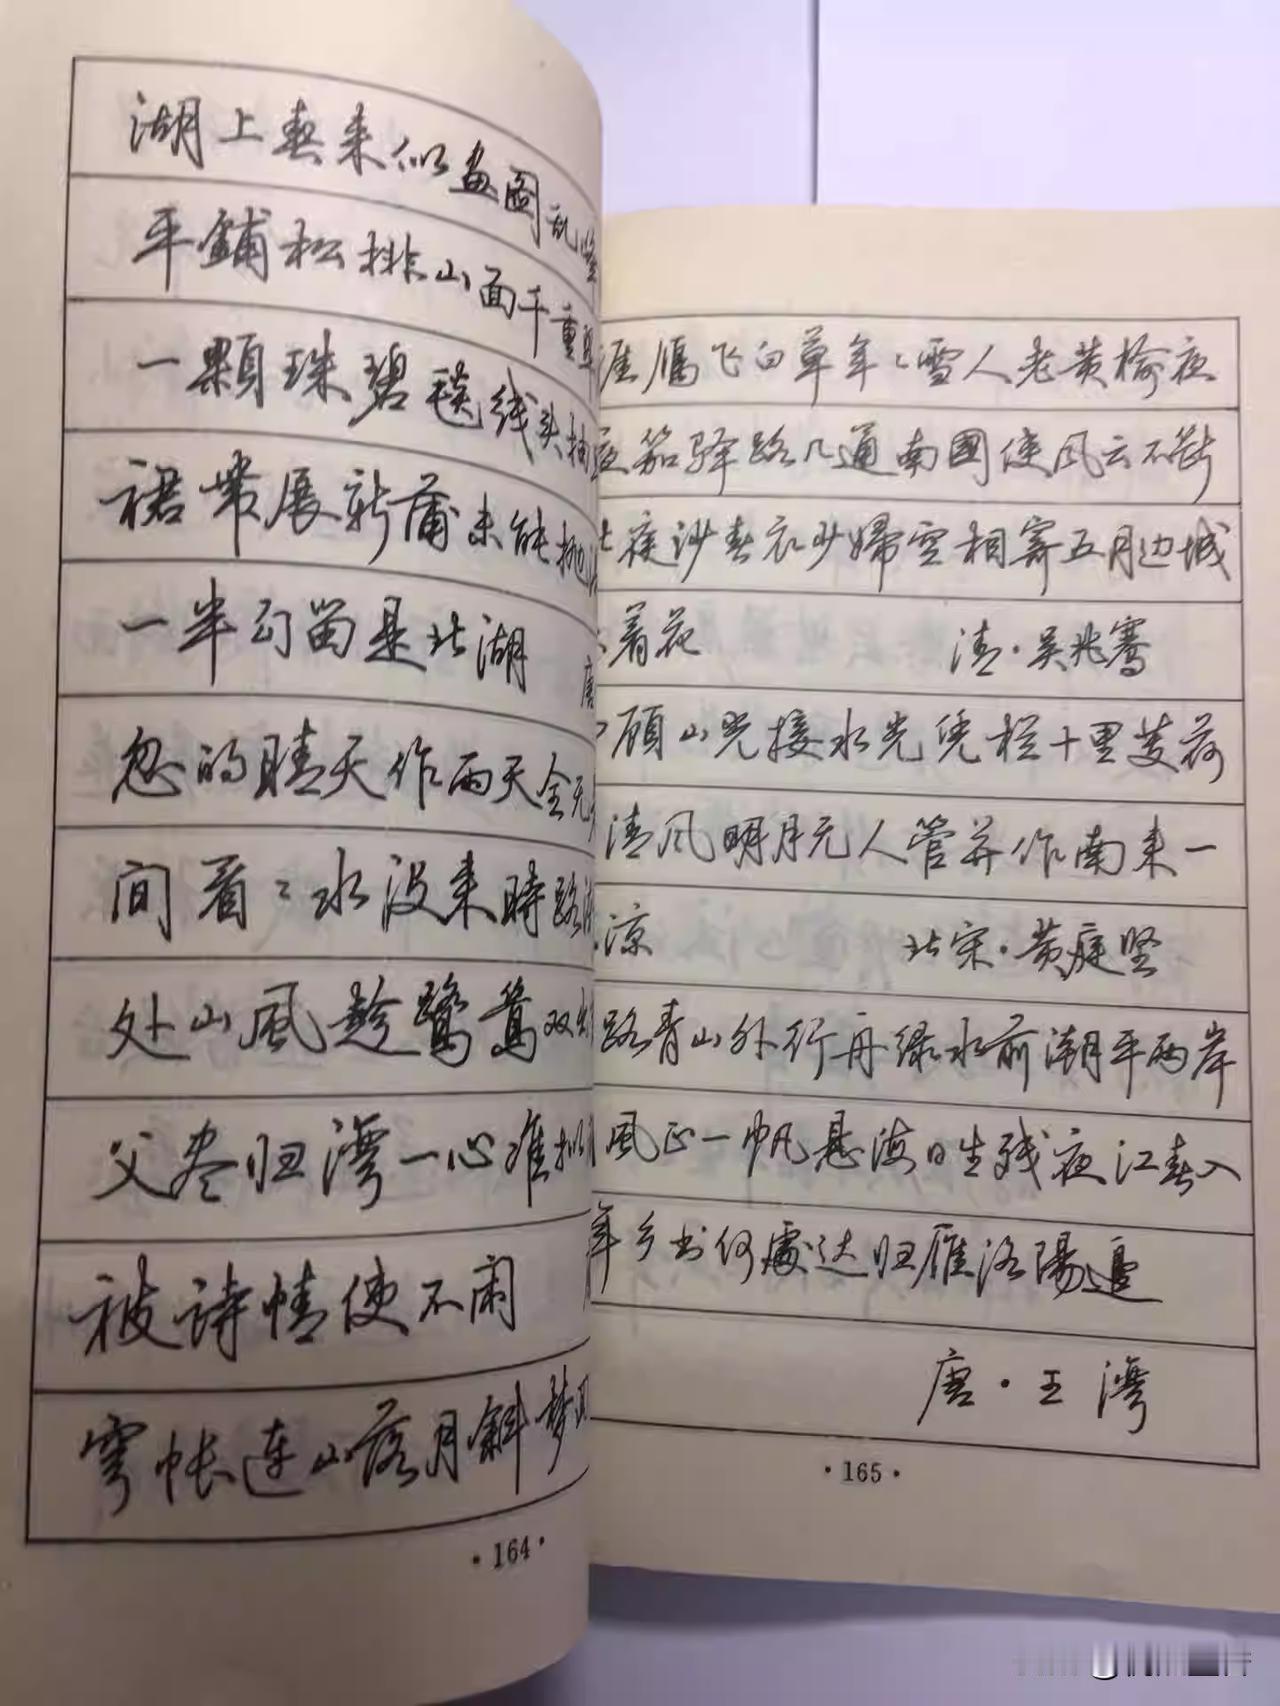 湖上春来似画图乱峰
平铺松排山面千重翠
一颗珠碧毯线头抽
裙带展新蒲未能抛
一半勾留是北湖
唐
忽的晴天作雨天全无
间看々水没来时路
处山风趁鹭鸶双
父卷归湾一心难拟
被诗情使不闲
穹帐连山落月斜梦
·164·
涯雁飞白草年々雪人老黄榆夜
夜笳驿路几通南国使风云不断
北庭沙春衣少妇空相寄五月边城
着花 清·吴兆骞
顾山光接水光凭栏十里芰荷
清风明月无人管并作南来一
凉 北宋·黄庭坚
路青山外行舟绿水前潮平两岸
风正一帆悬海日生残夜江春入
年乡书何處达归雁洛陽邊
唐·王湾
·165·